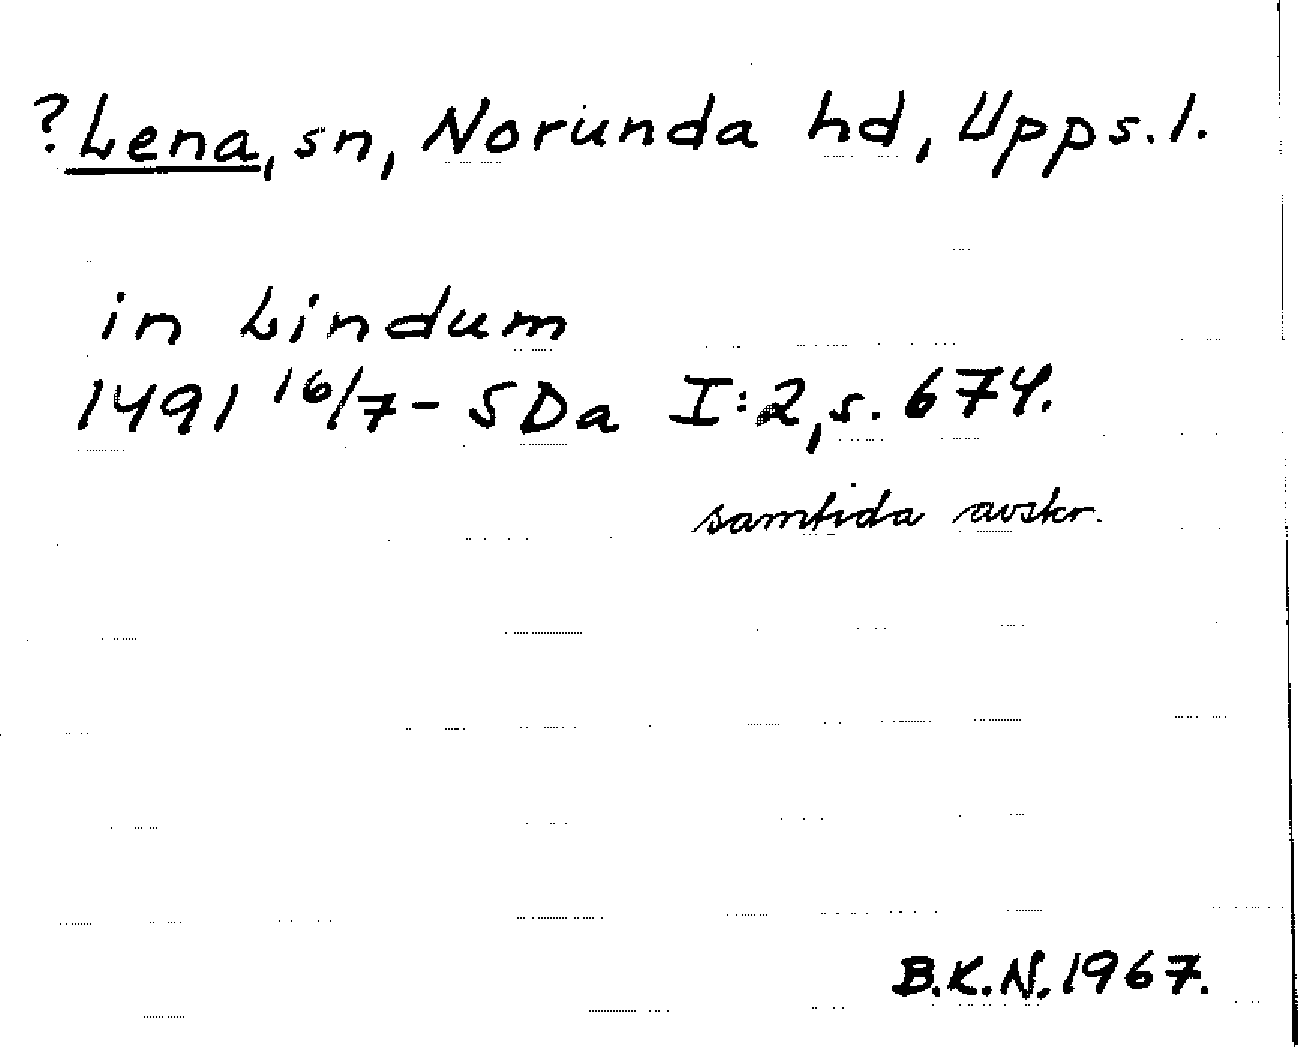 ?Lena, sn, Norunda hd, Upps. l.
in Lindum
1491 16/7 - SDa I:2, s. 674.
samtida avskr.
B.K.N. 1967.